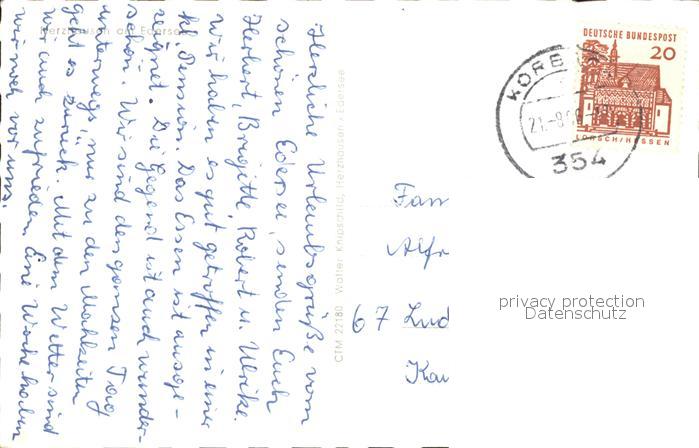 Herzhausen am Edersee
Herzliche Urlaubsgrüße vom
schönen Edersee, senden Euch
Herbert, Brigitte, Robert u. Ulrike.
Wir haben es gut getroffen in einer
kl. Pension. Das Essen ist ausge-
zeignet. Die Gegend ist auch wunder-
schön. Wir sind den ganzen Tag
unterwegs, nur zu den Mahlzeiten
geht es zurück. Mit dem Wetter sind
wir auch zufrieden. Eine Woche haben
wir noch vor uns.
CTM 22180 Walter Knipschild, Herzhausen / Edersee
DEUTSCHE BUNDESPOST
20
LORSCH/HESSEN
KORB
21.-8.
354
Fam
Alfr
67 Lud
Kar
privacy protection
Datenschutz